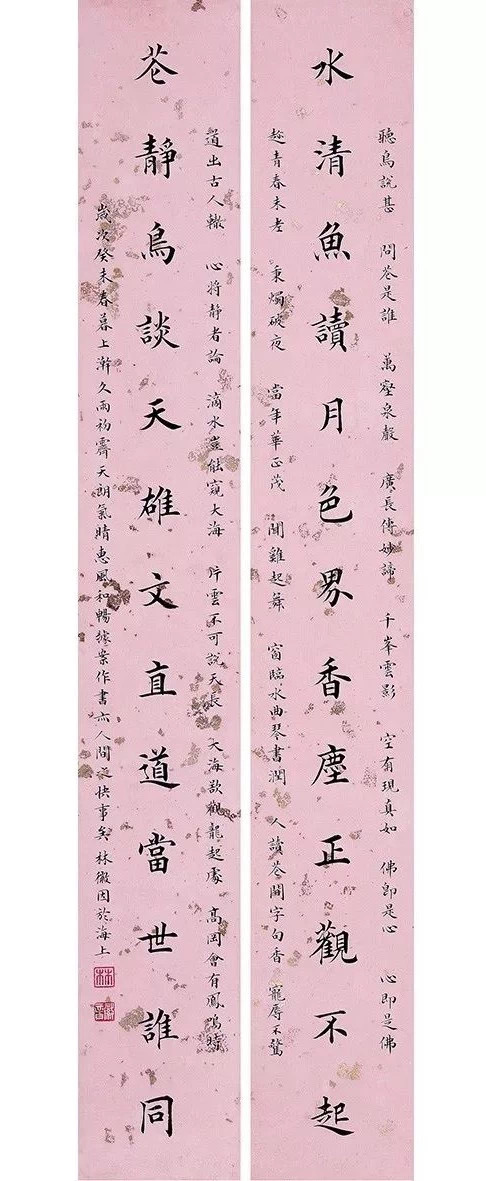 聽鳥說甚 問花是誰 萬壑泉聲 廣長傳妙諦 千峯雲影 空有現真如 佛即是心 心即是佛
水清魚讀月色界香塵正觀不起
趁青春未老 秉燭破夜 當年華正茂 聞雞起舞 窗臨水曲琴書潤 人讀花間字句香 寵辱不驚
道出古人轍 心將静者論 滴水豈能窺大海 片雲不可說天長 大海欲觀龍起處 高岡會有鳳鳴時
花靜鳥談天雄文直道當世誰同
歲次癸未春暮上澣久雨初霽天朗氣晴惠風和暢據案作書亦人間之快事矣林徽因於海上